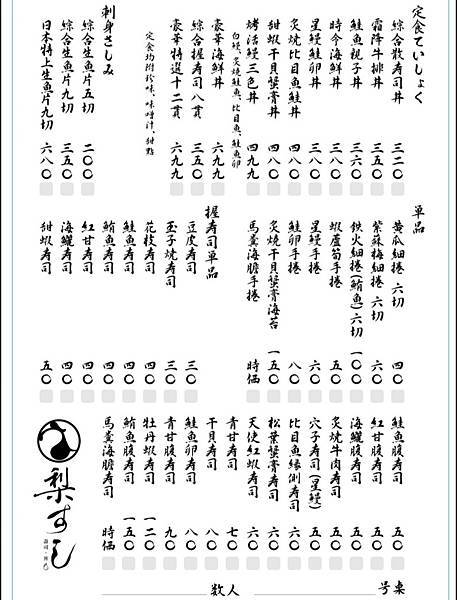 定食ていしょく
綜合散寿司丼 三二〇
霜降牛排丼 三五〇
鮭魚親子丼 三六〇
時令海鮮丼 三八〇
星鰻鮭卵丼 三八〇
炙燒比目魚鮭丼 四八〇
甜蝦干貝蟹膏丼 四八〇
烤活鰻三色丼 四九九
白鰻、炙燒鮭魚、比目魚、鮭魚卵
豪華海鮮丼 六九九
綜合握寿司八貫 三五〇
豪華特選十二貫 六九九
定食均附珍味、味噌汁、甜點
刺身さしみ
綜合生魚片五切 二〇〇
綜合生魚片九切 三五〇
日本特上生魚片九切 六八〇
單品
黃瓜細捲 六切 四〇
紫蘇梅細捲 六切 六〇
鉄火細捲(鮪魚)六切 一〇〇
蝦蘆筍手捲 五〇
星鰻手捲 六〇
鮭卵手捲 八〇
炙燒干貝蟹膏海苔 一五〇
馬糞海膽手捲 時価
握寿司單品
豆皮寿司 三〇
玉子燒寿司 三〇
花枝寿司 四〇
鮭魚寿司 四〇
鮪魚寿司 四〇
紅甘寿司 四〇
海鱺寿司 四〇
甜蝦寿司 五〇
鮭魚腹寿司 五〇
紅甘腹寿司 五〇
海鱺腹寿司 五〇
炙燒牛肉寿司 五〇
穴子寿司(星鰻) 五〇
比目魚緣側寿司 六〇
松葉蟹膏寿司 六〇
天使紅蝦寿司 六〇
青甘寿司 七〇
干貝寿司 八〇
鮭魚卵寿司 八〇
青甘腹寿司 九〇
牡丹蝦寿司 一二〇
鮪魚腹寿司 一五〇
馬糞海膽寿司 時価
梨すし
数人
号桌